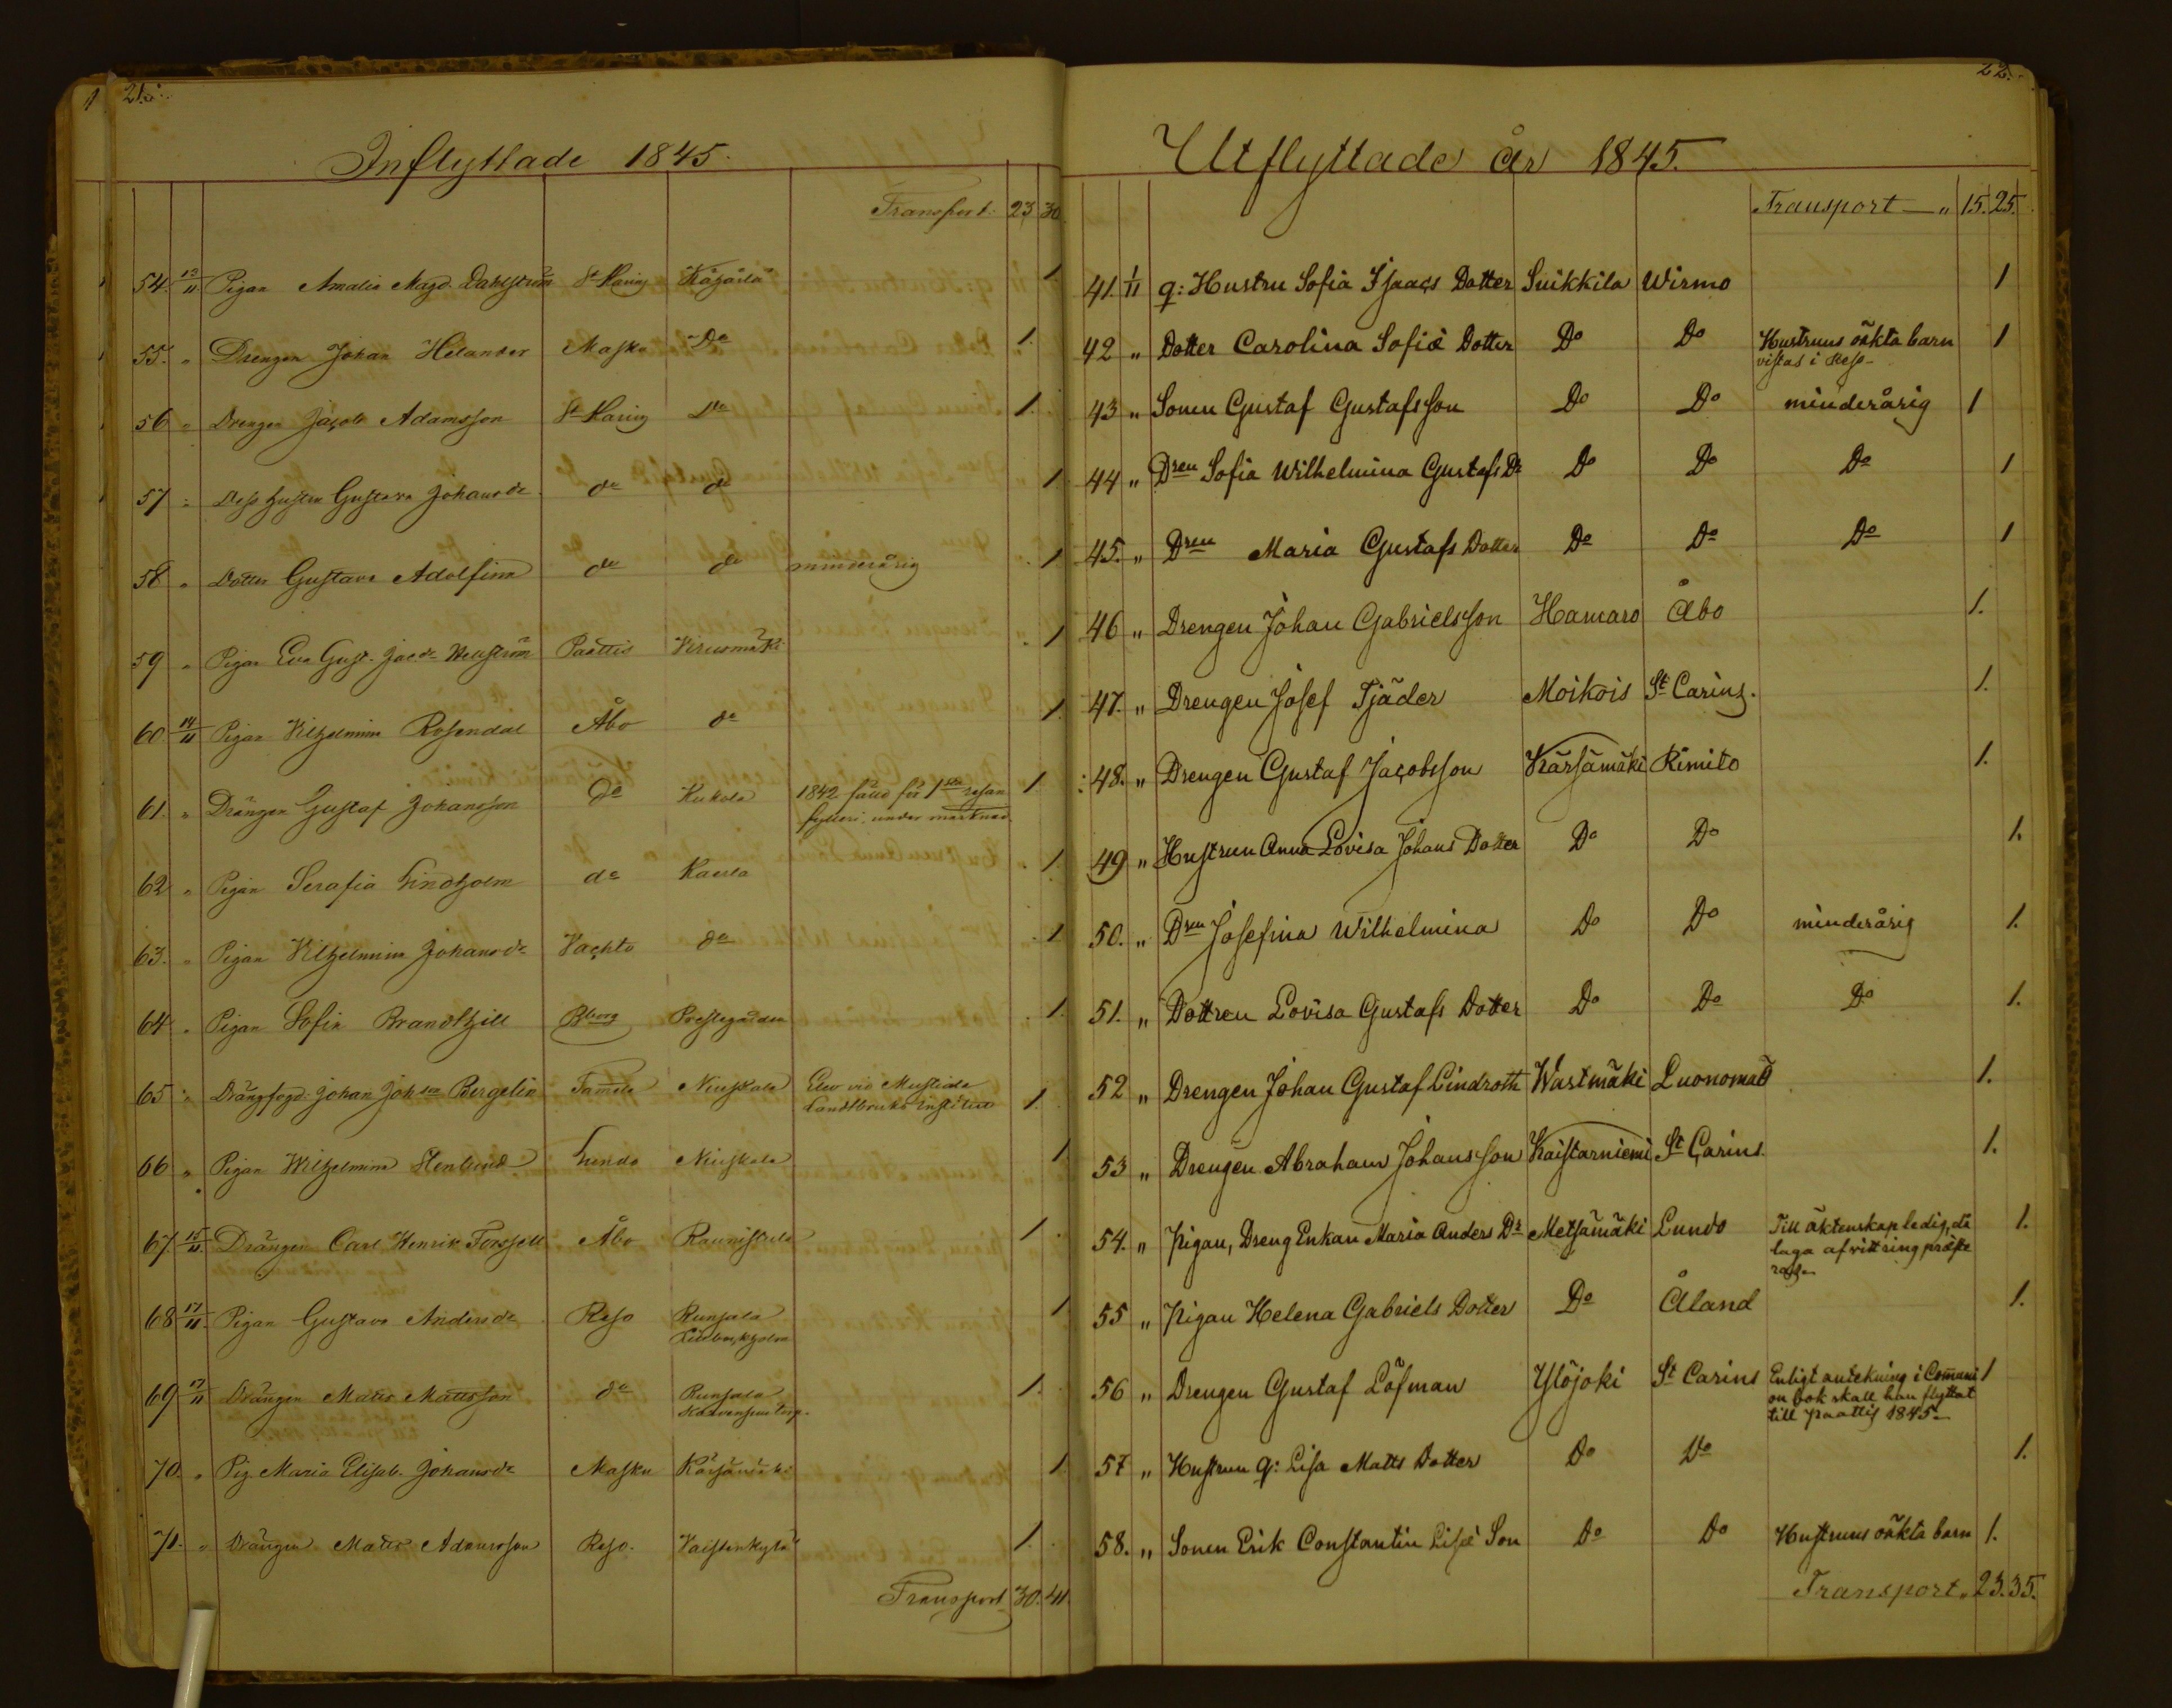 21.
Inflyttade 1845.
Transport: 23 30
54. 13/11 Pigan Amalia Magd. Dahlström St Karins Kägärla 1
55. " Drengen Johan Helander Masku Do 1.
56 " Drengen Jacob Adamsson St Karins Do 1.
57 " Dess hustru Gustava Johansdr do do 1
58 " Dotter Gustava Adolfina do do minderårig 1
59 " Pigan Eva Gust. Jacdr Wenström Paattis Kirusmäki 1
60 14/11 Pigan Vilhelmina Rosendal Åbo do 1.
61. " Drängen Gustaf Johansson do Kukola 1842 sakf för 1sta resan 1
fylleri under marknad
62 " Pigan Serafia Lindholm do Kaerla 1.
63. " Pigan Vilhelmina Johansdr Vachto do 1
64 " Pigan Sofia Brandthill Bborg Prestegården 1.
65 " Drängfogd. Johan Johsn Bergelin Tamela Niuskala Elev vid Mustiala
Landtbruks Institut 1.
66 " Pigan Wilhelmina Stenlund Lundo Niuskala 1
67 15/11. Drängen Carl Henrik Forssell Åbo Raunistula 1
68 17/11. Pigan Gustava Andersdr Reso Runsala 1
69 17/11 Drängen Matts Mattsson do Runsala 1.
70. " Pig. Maria Elisab. Johansdr Masku Kärsämäki 1
71. " Drängen Matts Adamsson Reso. Vaistenkylä 1.
Transport 30. 41.
22.
Utflyttade år 1845.
Transport — " 15. 25.
41. 1/11 q: Hustru Sofia Isaacs Dotter Suikkila Wirmo 1
42 " Dotter Carolina Sofiæ Dotter Do Do Hustruns oäkta barn 1
vistas i Reso-
43 " Sonen Gustaf Gustafsson Do Do minderårig 1
44 " Dren Sofia Wilhelmina Gustafs Dr Do Do Do 1
45. " Dren Maria Gustafs Dotter Do Do Do 1
46 " Drengen Johan Gabrielsson Hamaro Åbo 1.
47. " Drengen Josef Tjäder Moikois St Carins. 1.
48. " Drengen Gustaf Jacobsson Kärsämäki Rimito 1.
49 " Hustrun Anna Lovisa Johans Dotter Do Do 1.
50. " Dren Josefina Wilhelmina Do Do minderårig 1.
51. " Dottren Lovisa Gustafs Dotter Do Do Do 1.
52 " Drengen Johan Gustaf Lindroth Wastmäki Luonomaa 1.
53 " Drengen Abraham Johansson Kaistarniemi St Carins 1.
54. " Pigan, Dreng Enkan Maria Anders Dr Metsämäki Lundo Till äktenskap ledig, då 1.
laga afvittring preste
ras-
55 " Pigan Helena Gabriels Dotter Do Åland 1.
56 " Drengen Gustaf Löfman Ylöjoki St Carins Enligt antekning i Comuni 1
on bok skall han flyttat
till Paattis 1845-
57 " Hustrun q: Lisa Matts Dotter Do Do 1.
58. " Sonen Erik Constantin Lisæ Son Do Do Hustruns oäkta barn 1.
Transport " 23. 35.